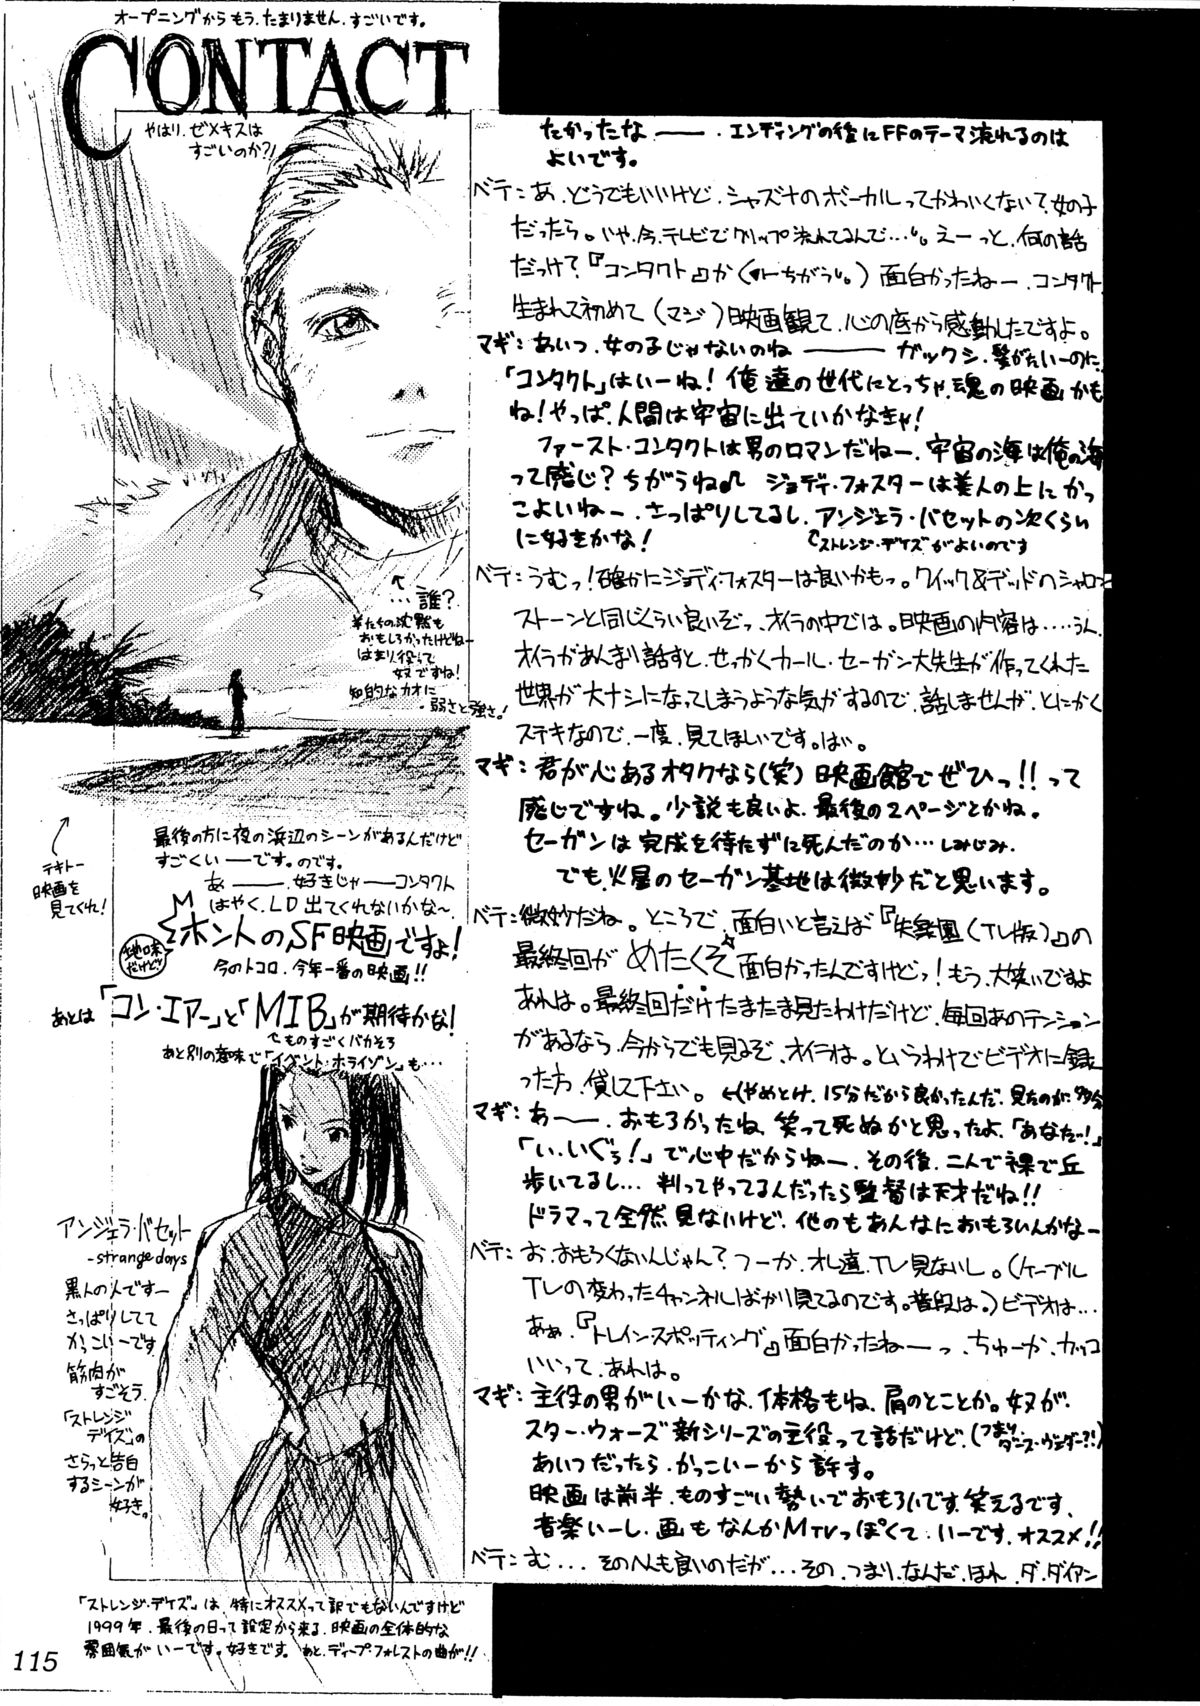 オープニングからもう、たまりません、すごいです。
CONTACT
やはり、ゼメキスは
すごいのか?!
←…誰?
羊たちの沈黙も
おもしろかったけどねー
はまり役って
奴ですね!
知的なカオに
弱さと強さ!
↑
テキトー
映画を
見てくれ!
最後の方に夜の浜辺のシーンがあるんだけど
すごくいーです。のです。
あ——、好きじゃーコンタクト
はやく、LD出てくれないかな〜、
ホントのSF映画ですよ!
地味だけど!
今のトコロ、今年一番の映画!!
あとは「コン・エアー」と「MIB」が期待かな!
ものすごくバカそう
あと別の意味で「イベント・ホライゾン」も…
アンジェラ・バセット
-strange days
黒人の人ですー
さっぱりしてて
かっこいーです
筋肉が
すごそう。
「ストレンジ
デイズ」の
さらっと告白
するシーンが
好き。
「ストレンジ・デイズ」は、特にオススメって訳でもないんですけど
1999年、最後の日って設定から来る、映画の全体的な
雰囲気がいーです。好きです。あと、ディープ・フォレストの曲が!!
115
たかったなー——。エンディングの後にFFのテーマ流れるのは
よいです。
ベテ:あ、どうでもいいけど、シャズナのボーカルってかわいくない?、女の子
だったら。いや、今、テレビでクリップ流れてるんで…。えーっと、何の話
だっけ?『コンタクト』か(←ちがう。)面白かったねー、コンタクト、
生まれて初めて(マジ)映画観て、心の底から感動したですよ。
マギ:あいつ、女の子じゃないのね———ガックシ、髪がたいーのに、
「コンタクト」はいーね!俺達の世代にとっちゃ、魂の映画かも
ね!やっぱ、人間は宇宙に出ていかなきゃ!
ファースト・コンタクトは男のロマンだねー、宇宙の海は俺の海
って感じ?ちがうね♪ ジョディ・フォスターは美人の上にかっ
こよいねー、さっぱりしてるし、アンジェラ・バセットの次くらい
に好きかな!
「ストレンジ・デイズ」がよいのです
ベテ:うむっ!確かにジョディ・フォスターは良いかもっ。クイック&デッドのシャロン
ストーンと同じくらい良いぞっ、オイラの中では。映画の内容は……うん、
オイラがあんまり話すと、せっかくカール・セーガン大先生が作ってくれた
世界が大ナシになってしまうような気がするので、話しませんが、とにかく
ステキなので、一度、見てほしいです。はい。
マギ:君が心あるオタクなら(笑)映画館でぜひっ!!って
感じですね。小説も良いよ、最後の2ページとかね。
セーガンは完成を待たずに死んだのか…しみじみ。
でも、火星のセーガン基地は微妙だと思います。
ベテ:微妙だね。ところで、面白いと言えば『失楽園(TV版)』の
最終回がめたくそ面白かったんですけどっ!もう、大笑いですよ
あれは。最終回だけたまたま見たわけだけど、毎回あのテンション
があるなら、今からでも見るぞ、オイラは。というわけでビデオに録
った方、貸して下さい。←(やめとけ、15分だから良かったんだ、見たのが、多分
マギ:あー—、おもろかったね、笑って死ぬかと思ったよ、「あなた!」
「い、いぐぅ!」で心中だからねー、その後、二人で裸で丘
歩いてるし…判ってやってるんだったら監督は天才だね!!
ドラマって全然見ないけど、他のもあんなにおもろいんかなー
ベテ:お、おもろくないんじゃん?フーか、オレ達、TV見ないし。(ケーブル
TVの変わったチャンネルばかり見てるのです。普段は。)ビデオは…
あぁ、『トレインスポッティング』面白かったねーっ、ちゅーか、カッコ
いいって、あれは。
マギ:主役の男がいーかな、体格もね、肩のとことか。奴が、
スター・ウォーズ新シリーズの主役って話だけど、(つまりダース・ヴェーダー?!)
あいつだったら、かっこいーから許す。
映画は前半、ものすごい勢いでおもろいです、笑えるです、
音楽いーし、画もなんかMTVっぽくて、いーです、オススメ!!
ベテ:む…、そのへんも良いのだが…その、つまり、なんだ、ほれ、ダ、ダイアン